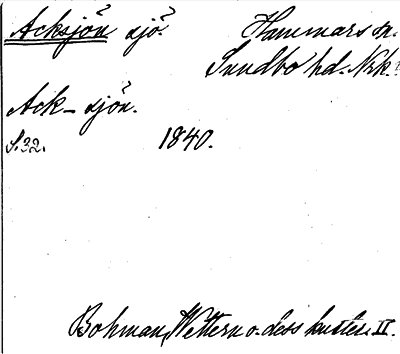 Acksjön sjö. Hammars sn.
Sundbo hd. Nrk.
Ack-sjön.
S. 32. 1840.
Bohman, Wettern o. dess kuster. II.